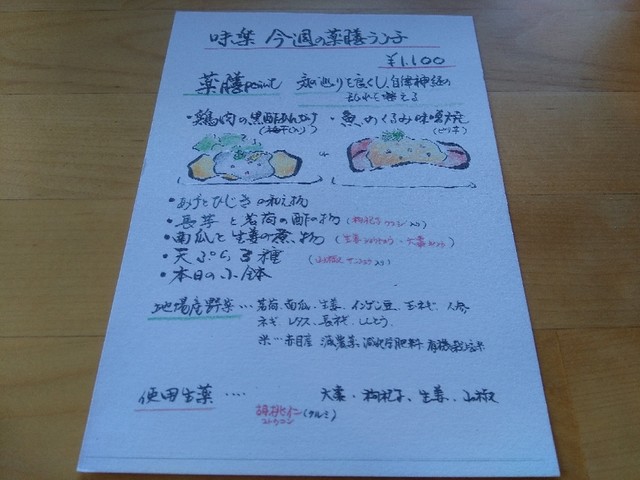 味楽 今週の薬膳ランチ
¥1,100
薬膳Point 気巡りを良くし、自律神経の
乱れを整える
・鶏肉の黒酢あんかけ ・魚のくるみ味噌焼
(梅干し入り) (ピリ辛)
or
・あげとひじきの和え物
・長芋と茗荷の酢の物 (枸杞子 クコシ入り)
・南瓜と生姜の煮物 (生姜 ショウキョウ・大棗 タイソウ)
・天ぷら3種 (山椒 サンショウ入り)
・本日の小鉢
地場産野菜… 茗荷、南瓜、生姜、インゲン豆、玉ネギ、人参、
ネギ レタス、長ネギ、ししとう
米…赤目産 減農薬、減化学肥料 有機栽培米
使用生薬…. 大棗・枸杞子、生姜、山椒
胡桃仁(クルミ)
コトウニン